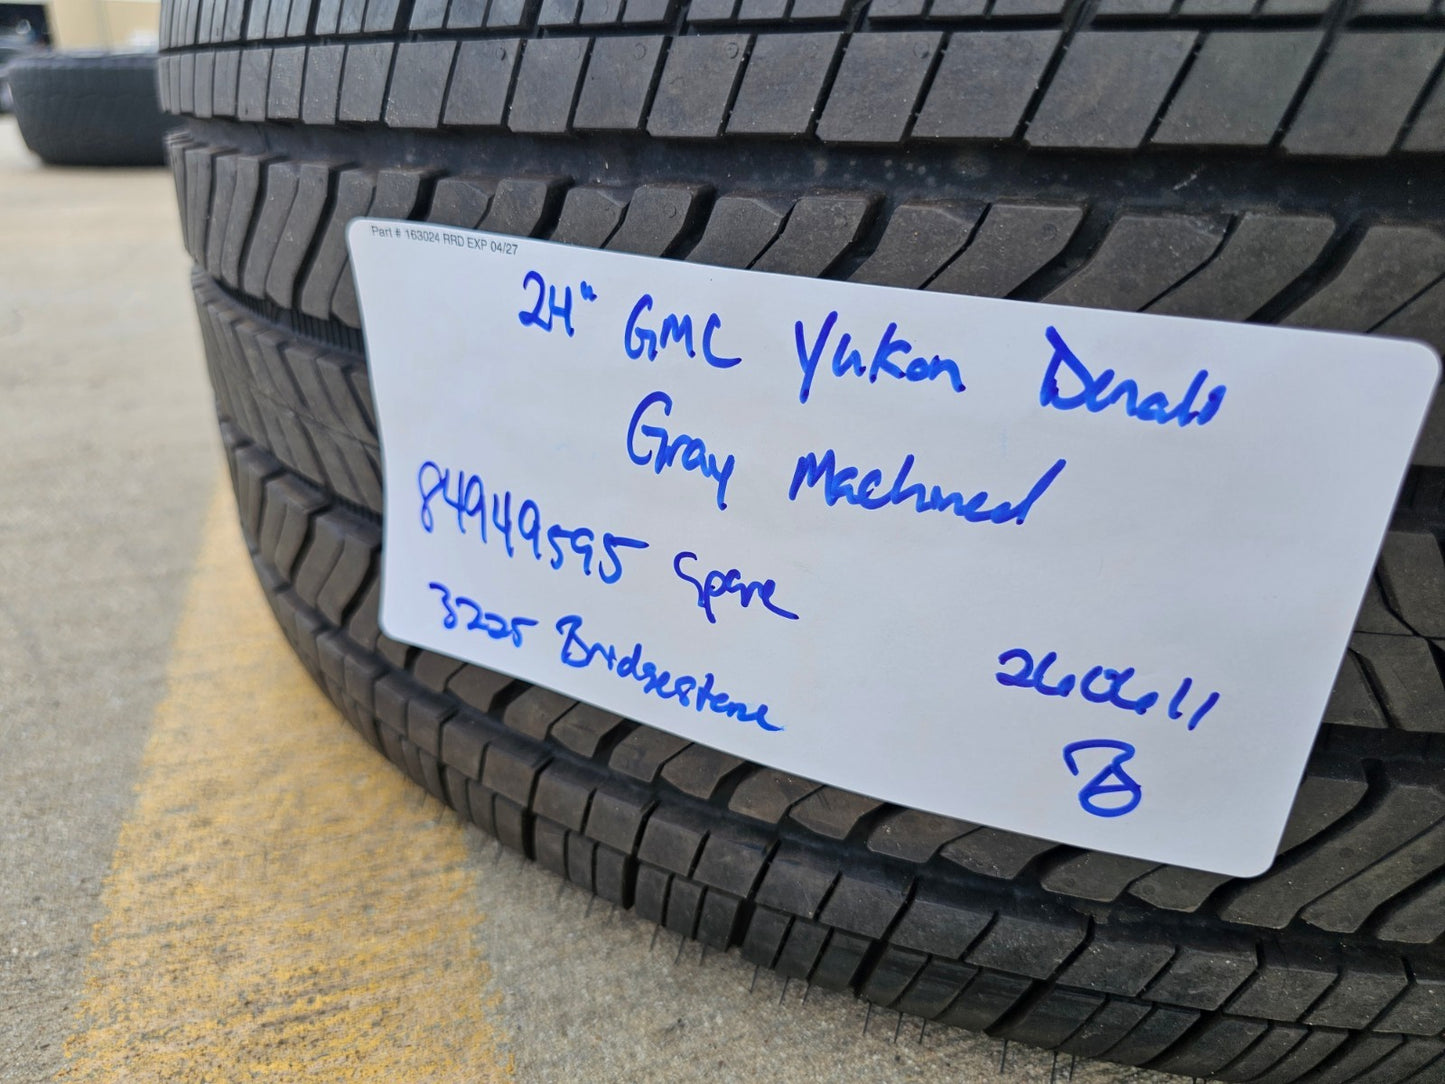 Part # 163024 RRD EXP 04/27
24" GMC Yukon Denali
Gray Machined
84949595 Spare
3225 Bridgestone
260611
B